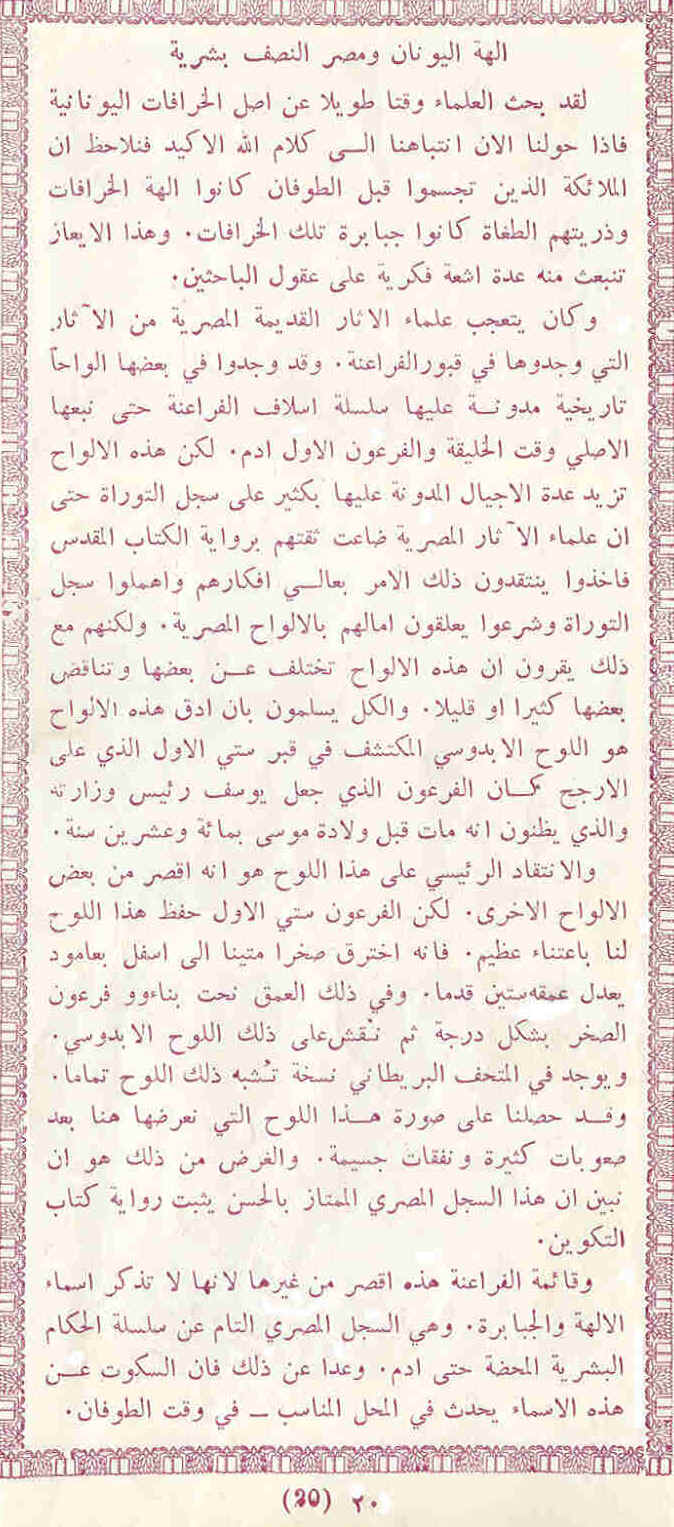 الهة اليونان ومصر النصف بشرية
لقد بحث العلماء وقتا طويلا عن اصل الخرافات اليونانية
فاذا حولنا الان انتباهنا الــى كلام الله الاكيد فنلاحظ ان
الملائكة الذين تجسموا قبل الطوفان كانوا الهة الخرافات
وذريتهم الطغاة كانوا جبابرة تلك الخرافات. وهذا الايعاز
تنبعث منه عدة اشعة فكرية على عقول الباحثين.
وكان يتعجب علماء الاثار القديمة المصرية من الآثار
التي وجدوها في قبور الفراعنة. وقد وجدوا في بعضها الواحاً
تاريخية مدونــة عليها سلسلة اسلاف الفراعنة حتى نبعها
الاصلي وقت الخليقة والفرعون الاول ادم. لكن هذه الالواح
تزيد عدة الاجيال المدونة عليها بكثير على سجل التوراة حتى
ان علماء الآثار المصرية ضاعت ثقتهم برواية الكتاب المقدس
فاخذوا ينتقدون ذلك الامر بعالــي افكارهم واهملوا سجل
التوراة وشرعوا يعلقون امالهم بالالواح المصرية. ولكنهم مع
ذلك يقرون ان هذه الالواح تختلف عــن بعضها وتناقض
بعضها كثيرا او قليلا. والكل يسلمون بان ادق هذه الالواح
هو اللوح الابدوسي المكتشف في قبر ستي الاول الذي على
الارجح كــان الفرعون الذي جعل يوسف رئيس وزارته
والذي يظنون انه مات قبل ولادة موسى بمائة وعشرين سنة.
والانتقاد الرئيسي على هذا اللوح هو انه اقصر من بعض
الالواح الاخرى. لكن الفرعون ستي الاول حفظ هذا اللوح
لنا باعتناء عظيم. فانه اخترق صخرا متينا الى اسفل بعامود
يعدل عمقه ستين قدما. وفي ذلك العمق نحت بناءوو فرعون
الصخر بشكل درجة ثم نقش على ذلك اللوح الابدوسي.
ويوجد في المتحف البريطاني نسخة تُشبه ذلك اللوح تماما.
وقــد حصلنا على صورة هــذا اللوح التي نعرضها هنا بعد
صعوبات كثيرة ونفقات جسيمة. والغرض من ذلك هو ان
نبين ان هذا السجل المصري الممتاز بالحسن يثبت رواية كتاب
التكوين.
وقائمة الفراعنة هذه اقصر من غيرها لانها لا تذكر اسماء
الالهة والجبابرة. وهي السجل المصري التام عن سلسلة الحكام
البشرية المحضة حتى ادم. وعدا عن ذلك فان السكوت عــن
هذه الاسماء يحدث في المحل المناسب ــ في وقت الطوفان.
٢٠ (20)